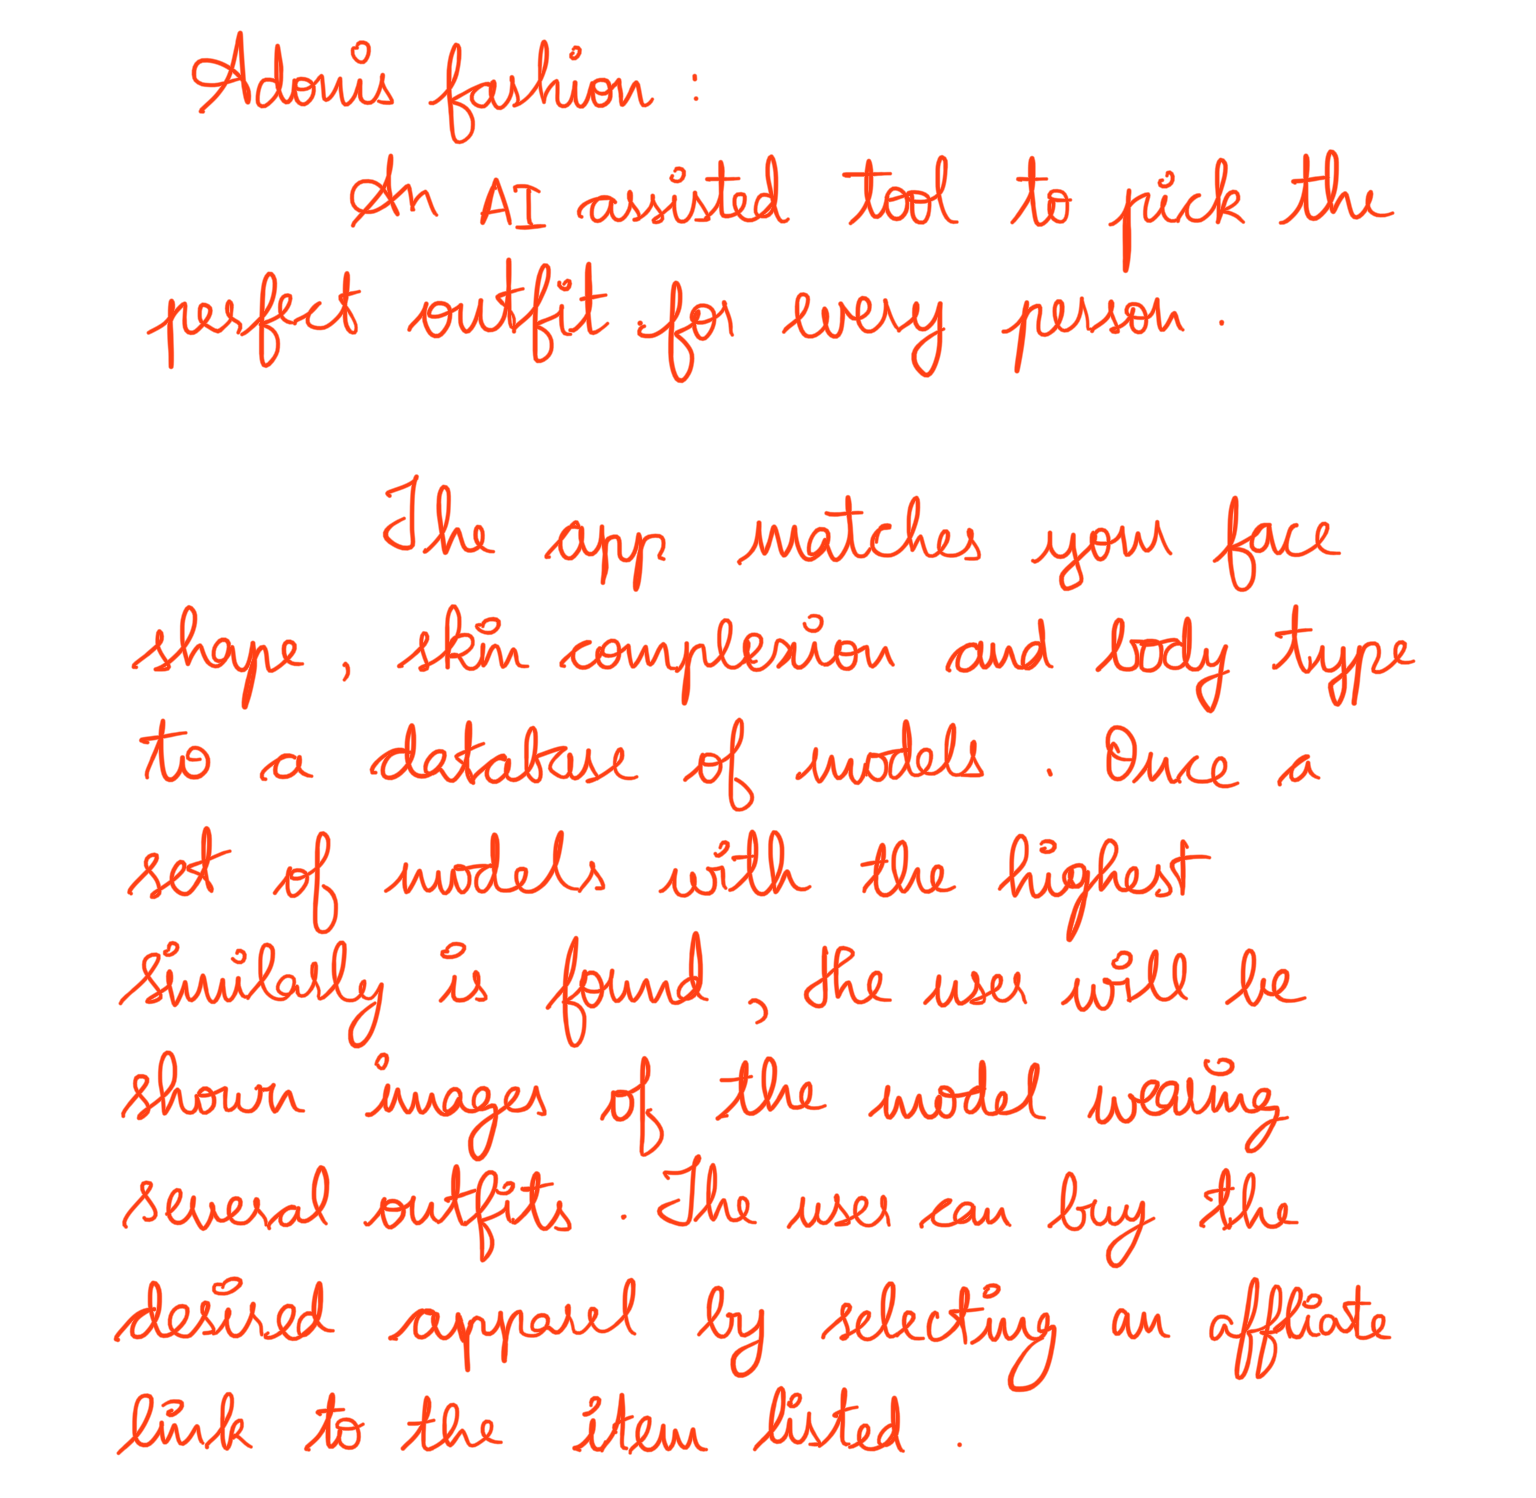 Adonis fashion :
An AI assisted tool to pick the
perfect outfit for every person.
The app matches your face
shape, skin complexion and body type
to a database of models. Once a
set of models with the highest
similarly is found, the user will be
shown images of the model wearing
several outfits. The user can buy the
desired apparel by selecting an affliate
link to the item listed.